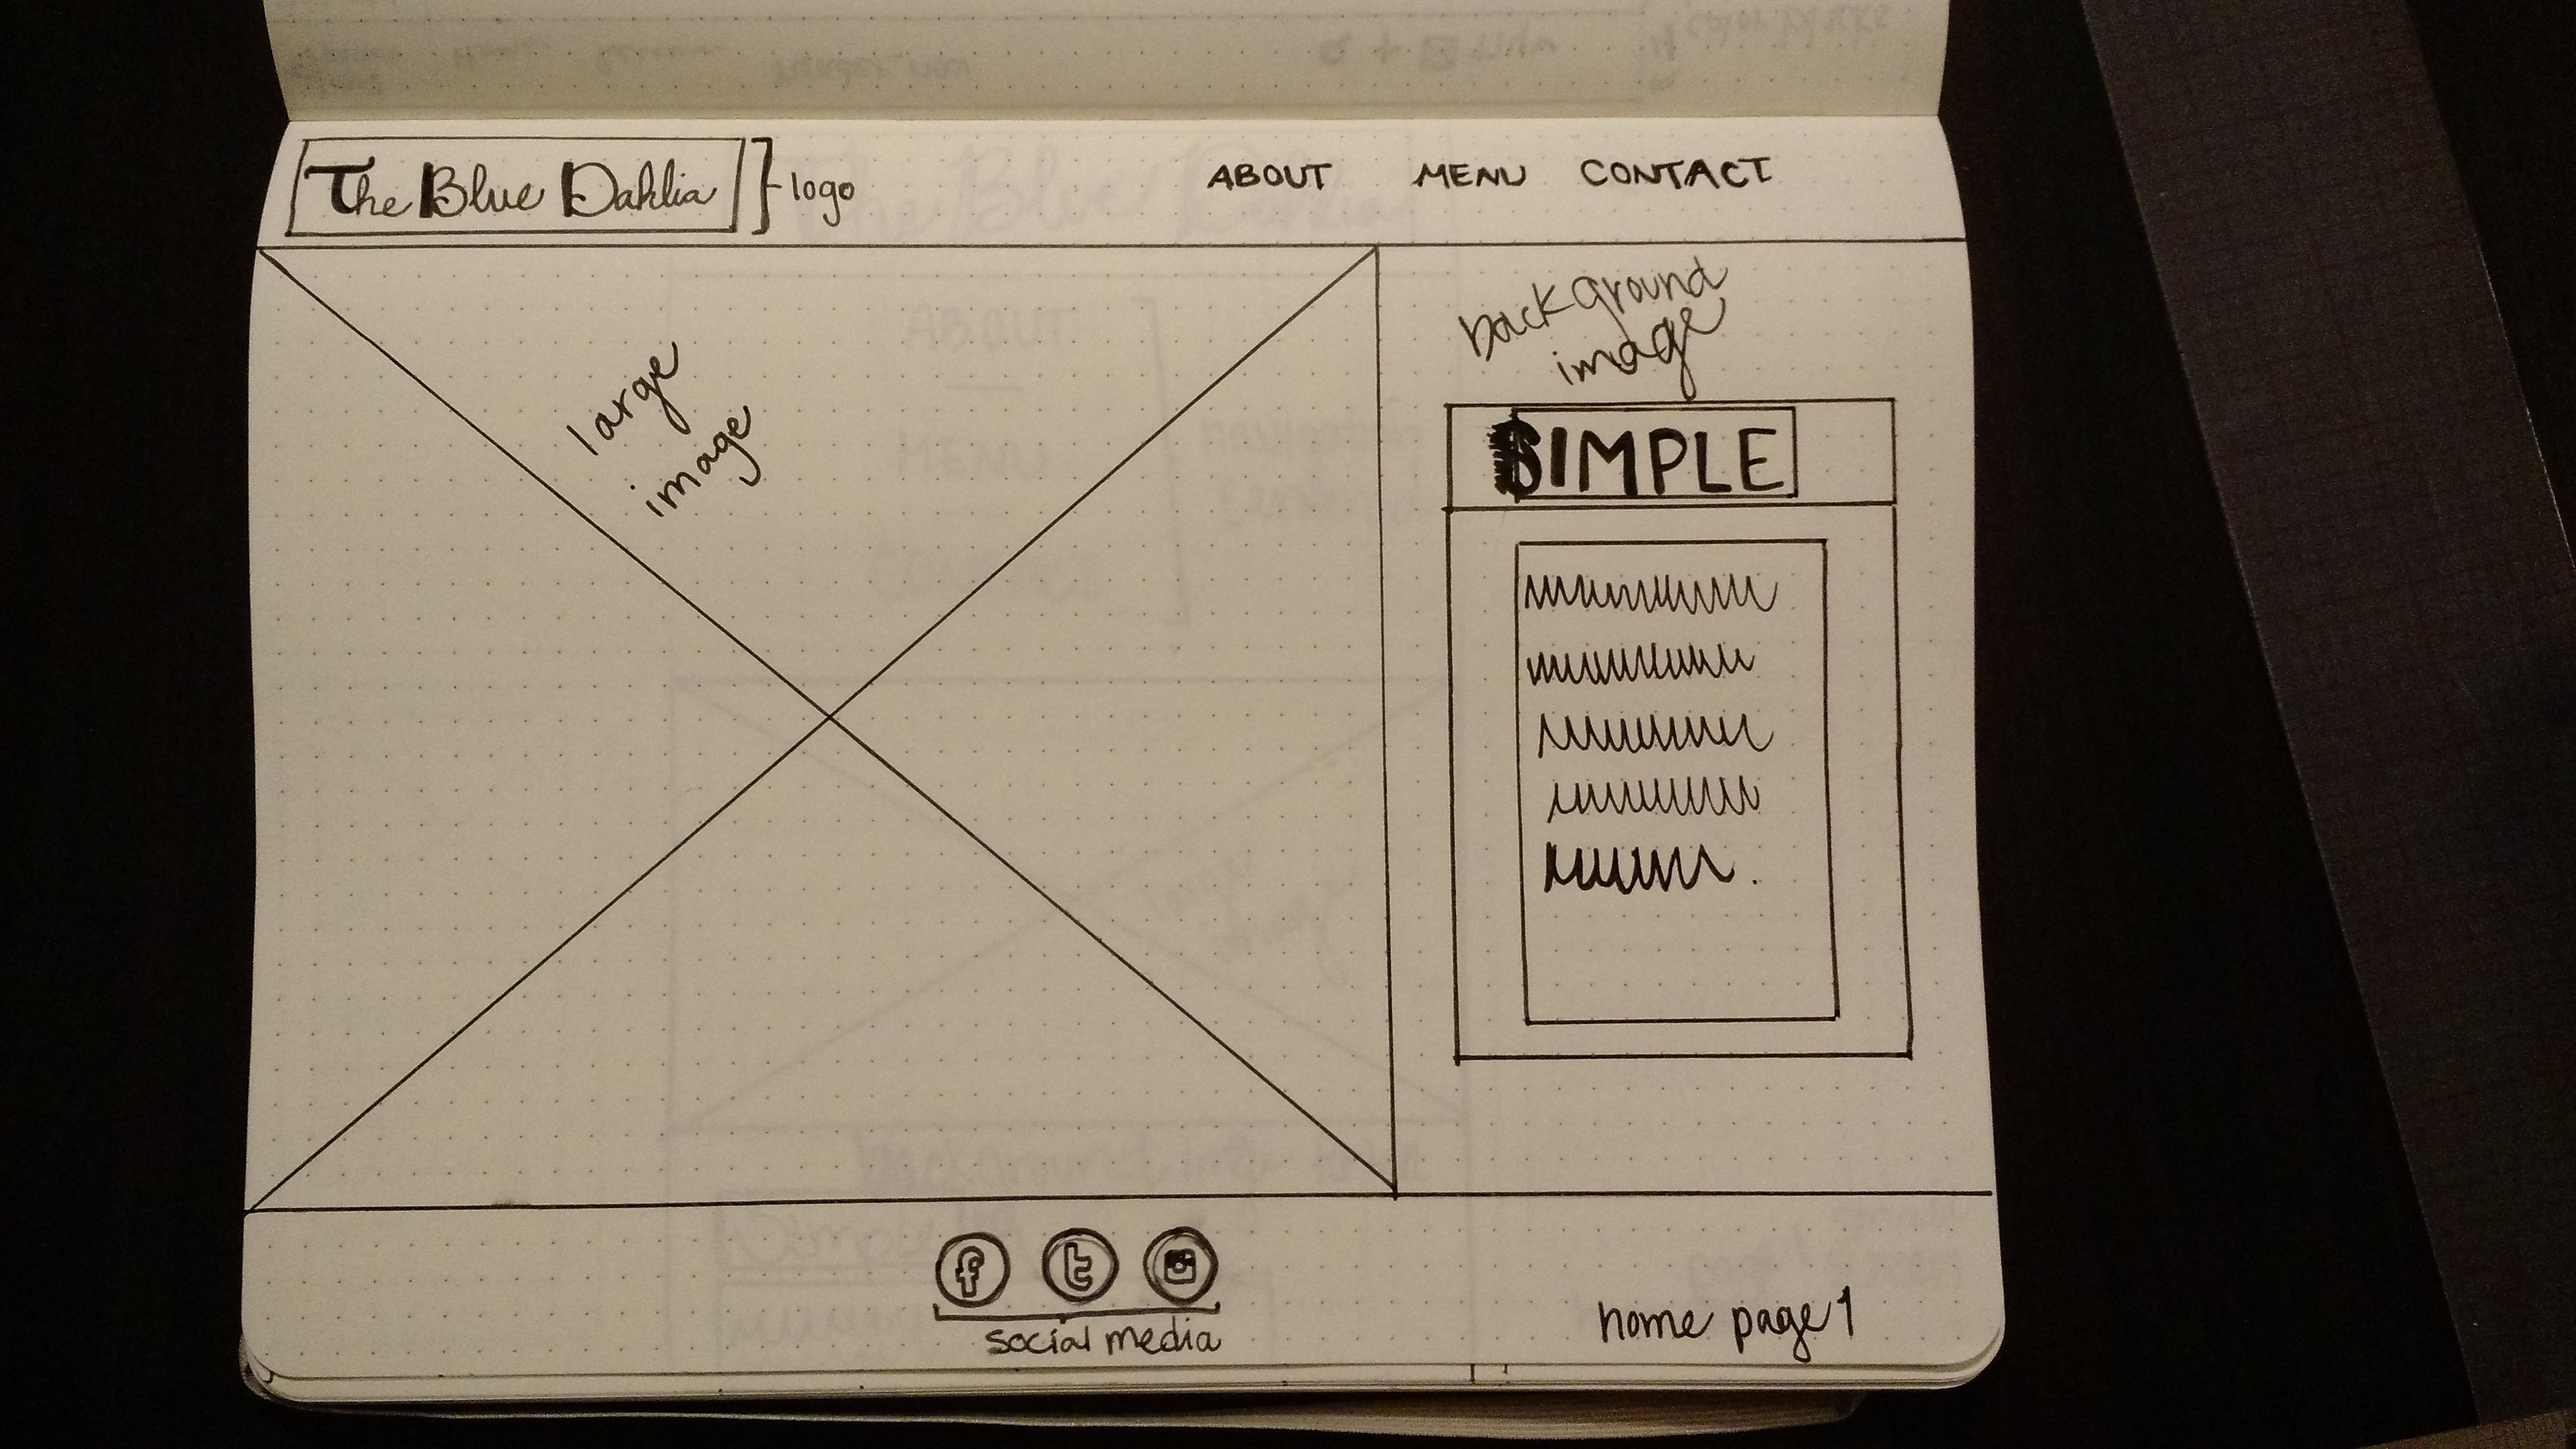 The Blue Dahlia
logo
ABOUT MENU CONTACT
large
image
background
image
SIMPLE
f t
social media
home page 1